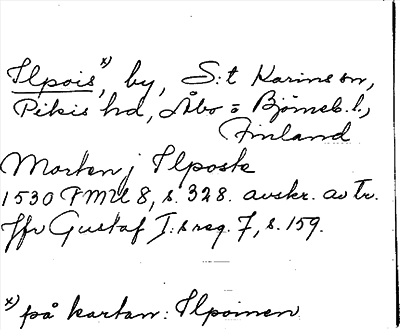 Ilpois x), by, S:t Karins sn,
Pikis hd, Åbo = Björneb. l.,
Finland
Morten j Ilposte
1530 FMU 8, s. 328. avskr. av Tr.
Jfr Gustaf I:s reg. 7, s. 159.
x) på kartan: Ilpoinen